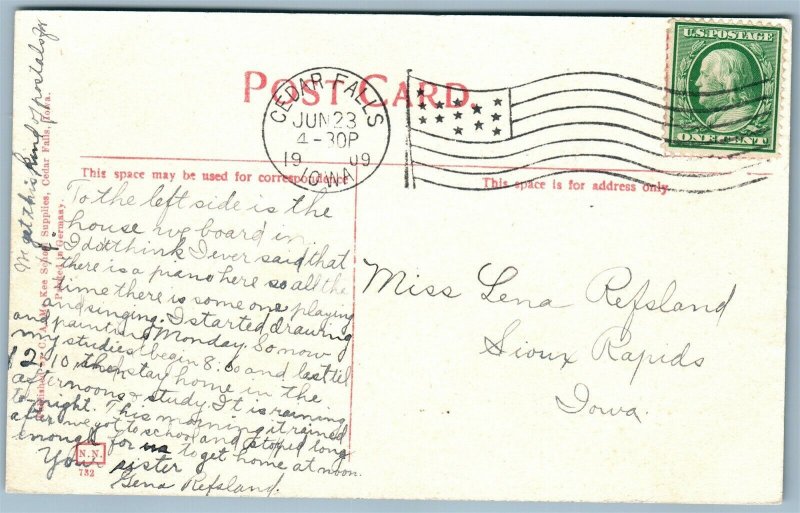 POST CARD.
CEDAR FALLS
JUN 23
4-30P
1909
IOWA
U.S. POSTAGE
ONE CENT
This space may be used for correspondence
This space is for address only.
To the left side is the
house we board in.
I didt think I ever said that
there is a piano here so all the
time there is some one playing
and singing. I started drawing
and painting Monday. So now
my studies begin 8:00 and last til
12.10, then stay home in the
afternoons & study. It is raining
tonight. This morning it rained
after we got to school and stoped long
enough for us to get home at noon.
Your sister
Gena Refsland.
get this kind of postals
Kee School Supplies, Cedar Falls, Iowa.
Printed in Germany.
N.N.
732
Miss Lena Refsland
Sioux Rapids
Iowa.